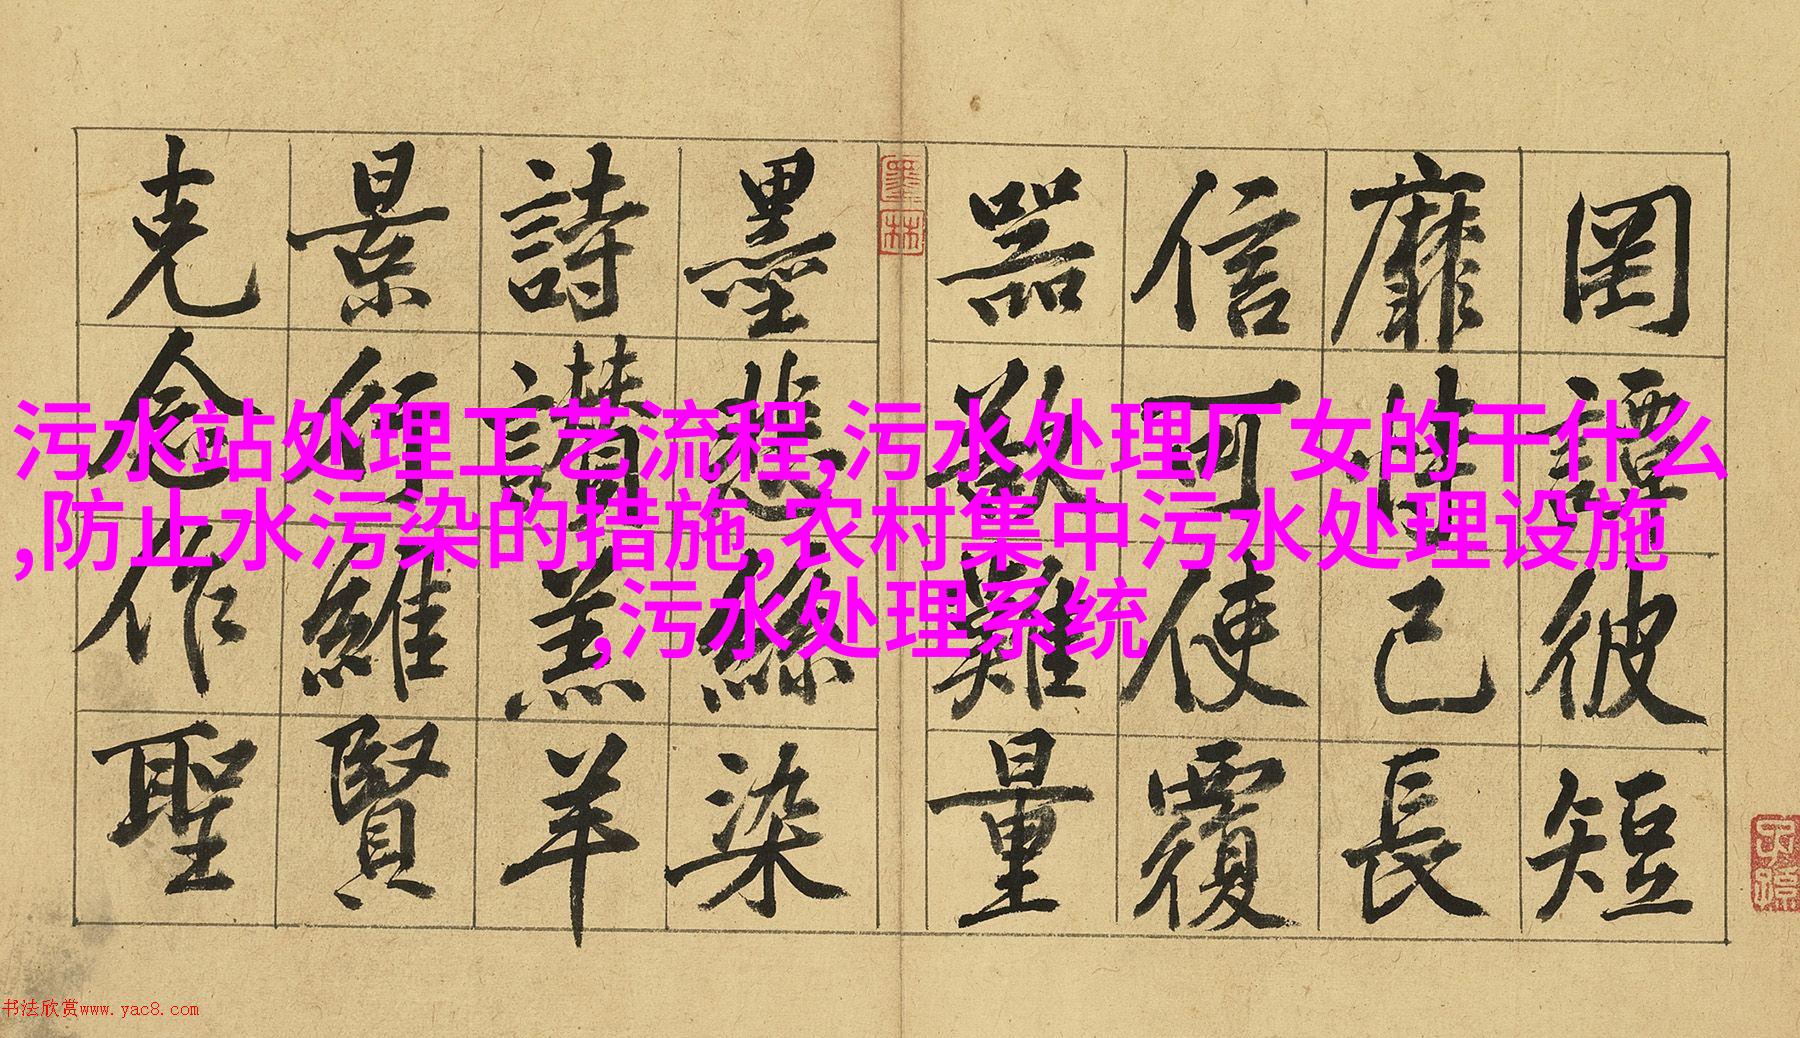 罔談彼短
靡恃己長
信可使覆
器欲難量
墨悲絲染
詩讚羔羊
景行維賢
克念作聖
墨林
污水站处理工艺流程,污水处理厂女的干什么
,防止水污染的措施,农村集中污水处理设施
,污水处理系统
书法欣赏www.yac8.com